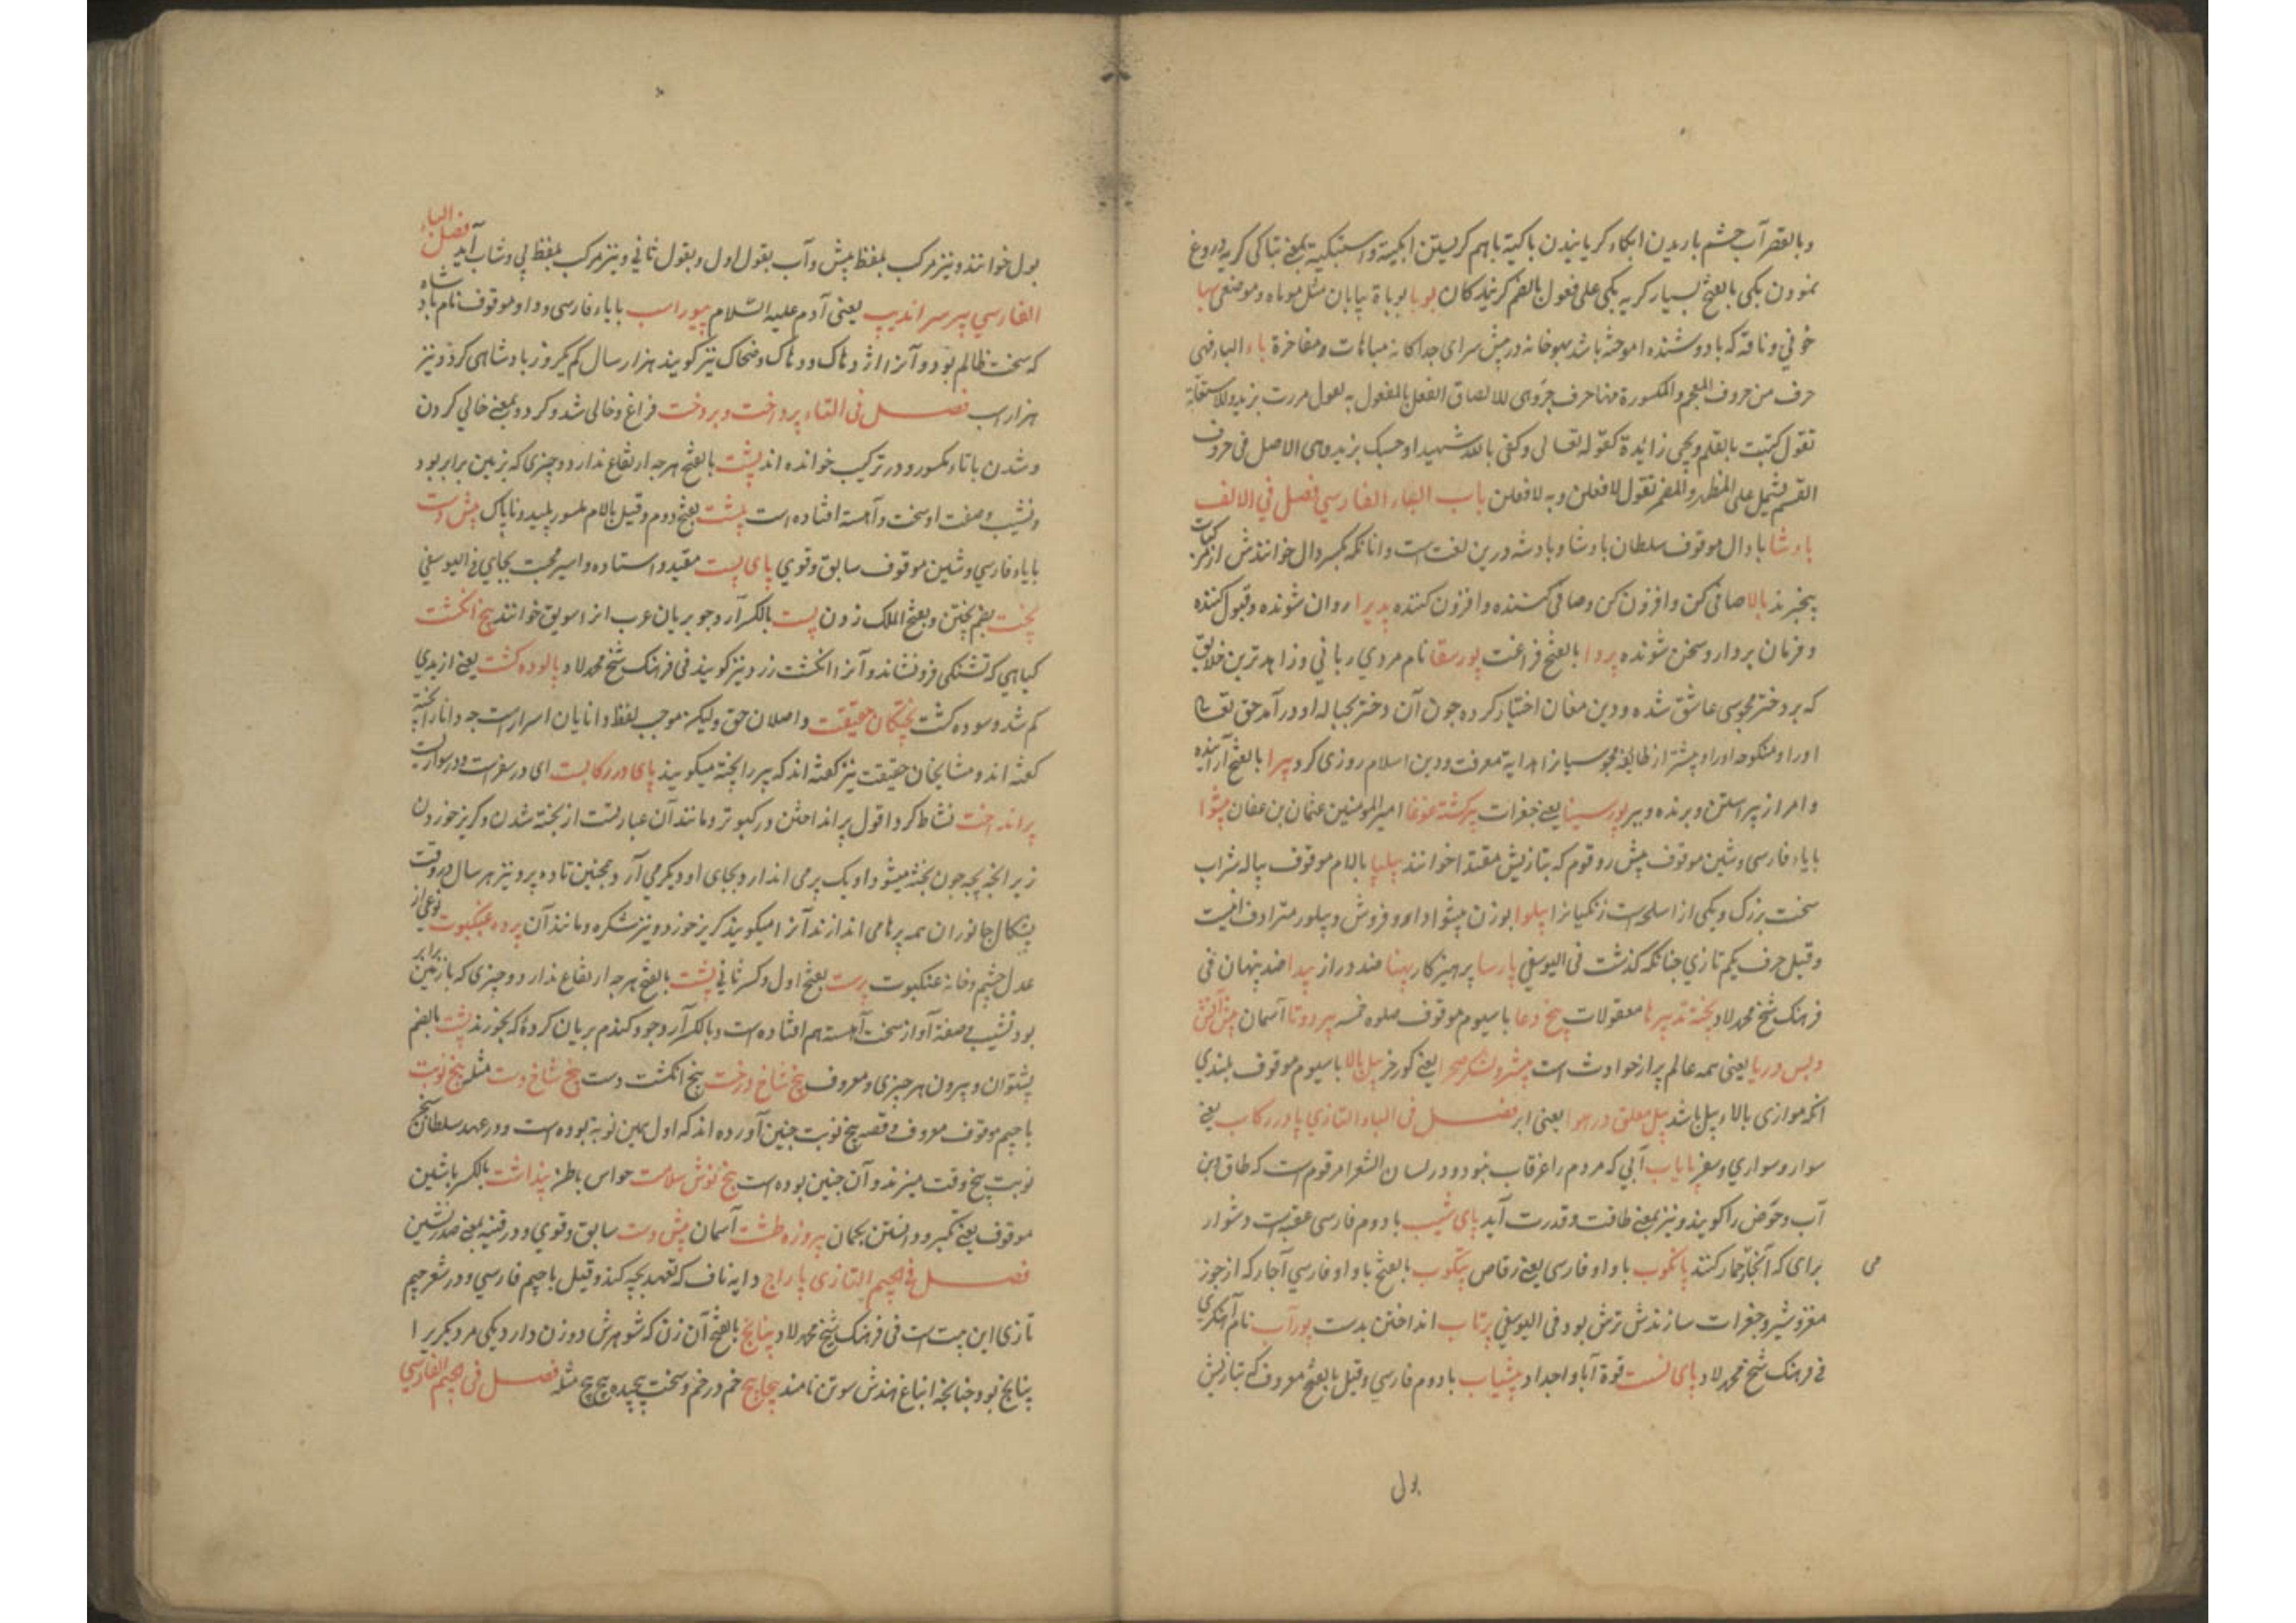 وبالقصر آب چشم باریدن ابکاء کریانیدن باکیة باهم کریستن ابکیته واستبکیته بمعنی تباکی کریه دروغ
نمودن بکی بالفتح بسیار کریه بکی علی فعول بالضم کریندکان بوبا بوباة بیابان مثل موماه وموضعی بها
خوفی وناقه که با دوشنده اموخته باشد بهوخانه در پیش سرای جداکانه مباهات ومفاخرة باء الباء فهی
حرف من حروف المعجم والمکسورة منها حرف جر وهی لالصاق الفعل بالمفعول به تقول مررت بزید وللاستعانة
تقول کتبت بالقلم ویجی زائدة کقوله تعالی وکفی بالله شهیدا وحسبک بزید وهی الاصل فی حروف
القسم یشمل علی المظهر والمضمر تقول لافعلن وبه لافعلن باب الباء الفارسی فصل فی الالف
پادشا با دال موقوف سلطان پادشاه وپادشه درین لغت است وانانکه بکسر دال خوانندش از
بیخبرند پالا صافی کن وافزون کن وصافی کننده وافزون کننده پذیرا روان شونده وقبول کننده
وفرمان بردار وسخن شونده پروا بالفتح فراغت پورسقا نام مردی ربانی وزاهدترین خلایق
که بر دختر مجوسی عاشق شده ودین مغان اختیار کرده چون آن دختر بحباله او درآمد حق تعالی
اورا ومنکوحه اورا وپیشتر از طایفه مجوسیانرا هدایة معرفت ودین اسلام روزی کرد پیرا بالفتح آراینده
وامر از پیراستن وبرنده وپیر پورسینا یعنی جغرات پیر کشته غوغا امیر المومنین عثمان بن عفان پیشوا
با یاء فارسی وشین موقوف پیش رو قوم که بتازیش مقتدا خوانند پیلپا بالام موقوف پیاله شراب
سخت بزرک ویکی از اسلحه است زنکیانرا پیلوا بوزن پیشوا دارو فروش وپیلور مترادف اینست
وقیل حرف یکم تازی چنانکه کذشت فی الیوسفی پارسا پرهیزکار پهنا ضد دراز پیدا ضد پنهان فی
فرهنک شیخ محمد لاد پخته تدبیرها معقولات پنج دعا با سیوم موقوف صلوه خمسه پیر دوتا آسمان پیش آتش
وپس دریا یعنی همه عالم پر از حوادث است پیشرو لشکر صحرا یعنی کورخر پیل بالا با سیوم موقوف بلندی
انکه موازی بالاء پیل باشد پیل معلق در هوا یعنی ابر فصل فی الباء التازی پا در رکاب یعنی
سوار وسواری وسفر پایاب آبی که مردم را غرقاب نبود ودر لسان الشعرا مرقوم است که طاق بن
آب وحوض را کویند ونیز بمعنی طاقت وقدرت آید پای شیب با دوم فارسی عقبه است دشوار
برای که آنجا جمار کنند پاکوب با واو فارسی یعنی رقاص پتکوب بالفتح با واو فارسی آچار که از جوز
مغز وشیر وجغرات سازندش ترش بود فی الیوسفی پرتاب انداختن بدست پورآب نام آهنکری
فی فرهنک شیخ محمد لاد پای نست قوة آبا واجداد پیشاب با دوم فارسی وقیل بالفتح معروف که بتازیش
می
بول
بول خوانند ونیز مرکب بلفظ پیش وآب بقول اول وبقول ثانی ونیز مرکب بلفظ پی وشاب آید فصل الباء
الفارسی پیر سراندیپ یعنی آدم علیه السلام پیوراسب با یاء فارسی وواو موقوف نام پادشاه
که سخت ظالم بود وآنرا اژدهاک ودهاک وضحاک نیز کویند هزار سال کم یکروز پادشاهی کرد ونیز
هزار اسب فصل فی التاء پرداخت وپردخت فراغ وخالی شد وکرد وبمعنی خالی کردن
وشدن با تاء مکسور ودر ترکیب خوانده اند پشت بالفتح هرچه ارتفاع ندارد وچیزی که بزمین برابر بود
ونشیب وصفت او سخت وآهسته افتاده است پلشت بفتح دوم وقیل بالام مکسور پلید وناپاک پیش دست
با یاء فارسی وشین موقوف سابق وقوی پای بست مقید واستاده واسیر محبت بجای فی الیوسفی
پخت بضم پختن وبفتح الملک زدن پست بالکسر آرد جو بریان عرب انرا سویق خوانند پنج انکشت
کیاهی که تشنکی فرونشاند وآنرا انکشت زرد ونیز کویند فی فرهنک شیخ محمد لاد پالوده کشت یعنی از بدی
کم شد وسوده کشت پختکان حقیقت واصلان حق ولیکن موجب لفظ دانایان اسرار است چه دانا را پخته
کفته اند ومشایخان حقیقت نیز کفته اند که پیر را پخته میکویند پای در رکابست ای در سفر است ودر سواریست
پر انداخت نشاط کرد اقول پر انداختن در کبوتر ومانند آن عبارتست از پخته شدن وکریز خوردن
زیرا نچه بچه چون پخته میشود اویک پر می اندازد وبجای او دیکر می آرد وهمچنین تا ده پر ونیز هر سال در وقت
پشکال جانوران همه پرها می اندازند آنرا میکویند کریز خورد ونیز شکره ومانند آن پرده عنکبوت نوعی از
عدل چشم وخانه عنکبوت پرست بفتح اول وکسر ثانی پست بالفتح هرچه ارتفاع ندارد وچیزی که با زمین برابر
بود نشیب صفة آواز سخت آهسته هم افتاده است وبالکسر آرد جو وکندم بریان کرده که بخورند پشت بالضم
پشتوان وبیرون هر چیزی ومعروف پنج شاخ درخت پنج انکشت دست پنج شاخ دست مثله پنج نوبت
با جیم موقوف معروف وقصه پنج نوبت چنین آورده اند که اول همین نوبه بوده است ودر عهد سلطان سنجر
نوبت پنج وقت میزنند وآن چنین بوده است پنج نوش سلامت حواس باطن پنداشت بالکسر با شین
موقوف یعنی تکبر ودانستن بکمان پیروزه طشت آسمان پیش دست سابق وقوی ودر قنیه بمعنی صدرنشین
فصل فی الجیم التازی پاراج دایه ناف که تعهد بچه کند وقیل با جیم فارسی ودر شعر جیم
تازی این بیت است فی فرهنک شیخ محمد لاد پنانج بالفتح آن زن که شوهرش دو زن دارد یکی مر دیکر را
پنانج بود چنانچه انباغ هندش سوتن نامند پیچاپیچ خم در خم وسخت پیچیده پیچ پیچ مثله فصل فی الجیم الفارسی